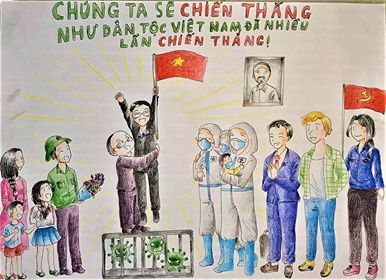 CHÚNG TA SẼ CHIẾN THẮNG
NHƯ DÂN TỘC VIỆT NAM ĐÃ NHIỀU
LẦN CHIẾN THẮNG!